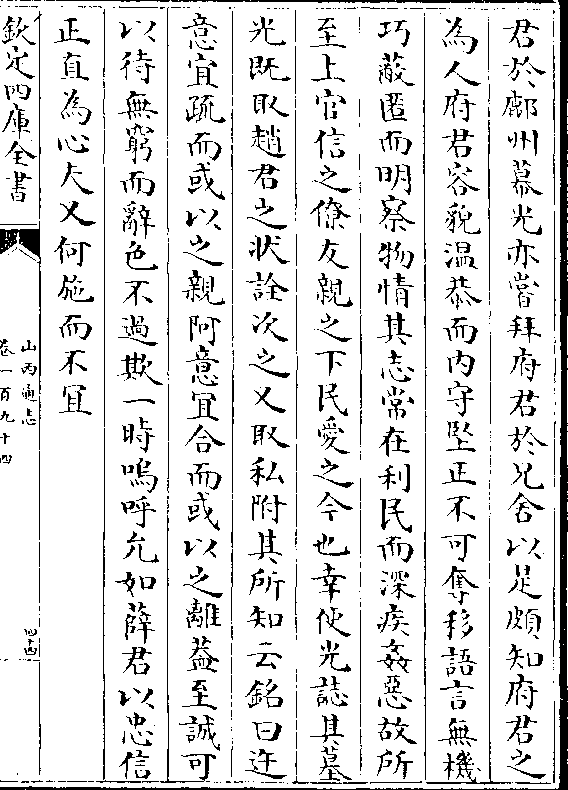 君於鄜州慕光亦嘗拜府君於兄舍以是頗知府君之
為人府君容貌温恭而内守堅正不可奪移語言無機
巧蔽匿而明察物情其志常在利民而深疾姦惡故所
至上官信之僚友親之下民愛之今也幸使光誌其墓
光既取趙君之狀詮次之又取私附其所知云銘曰迕
意宜疏而或以之親阿意宜合而或以之離葢至誠可
以待無窮而辭色不過欺一時嗚呼允如薛君以忠信
正直為心夫又何施而不宜
欽定四庫全書
山西通志
卷一百九十四
四十四